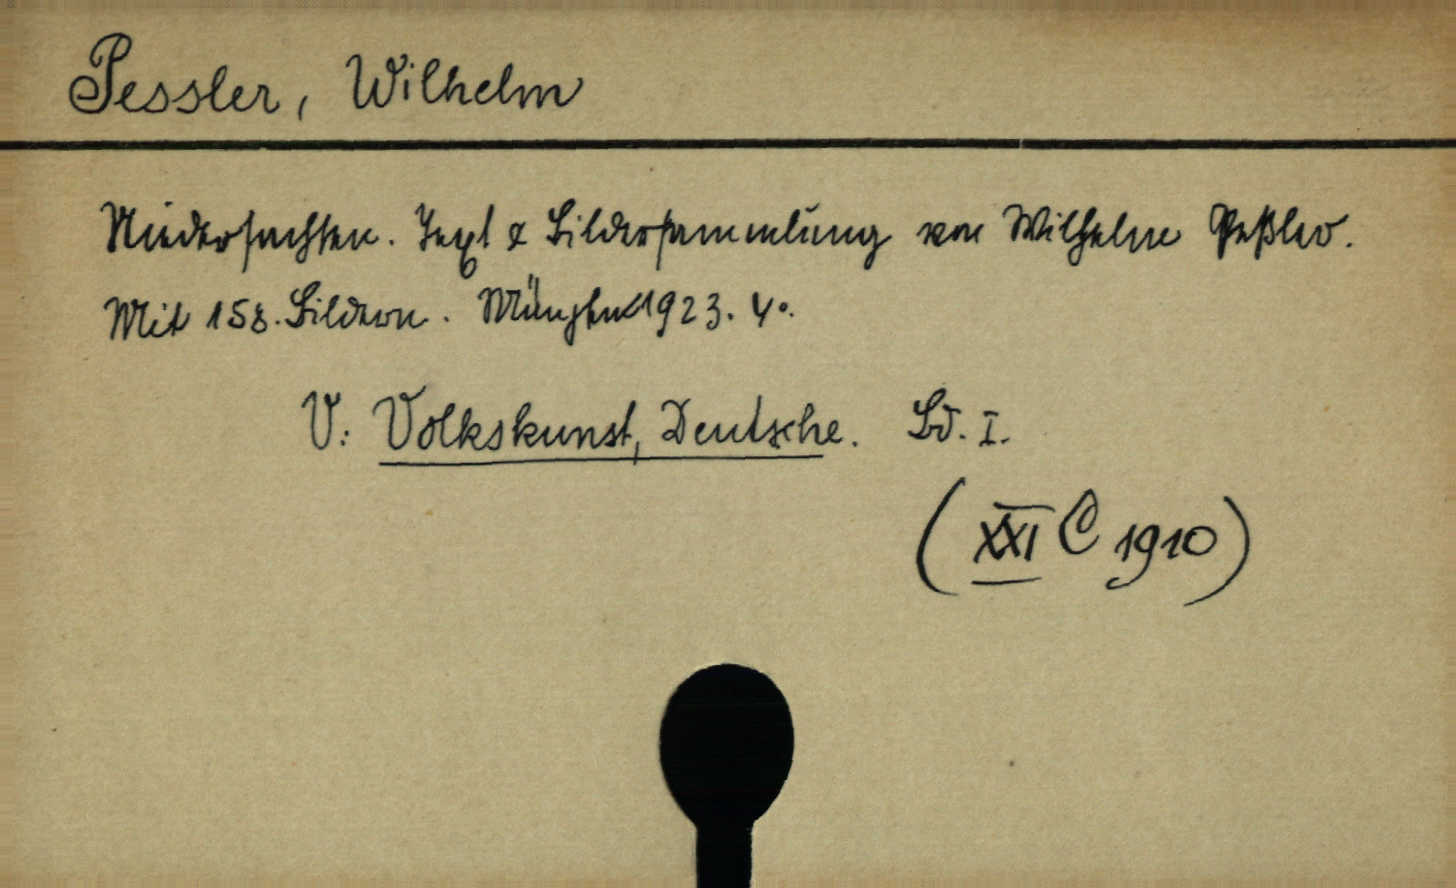 Pessler, Wilhelm
Niedersachsen. Text & Bildersammlung von Wilhelm Peßler.
Mit 158. Bildern. München 1923. 4°.
V: Volkskunst, Deutsche. Bd. I.
(XXI C 1910)